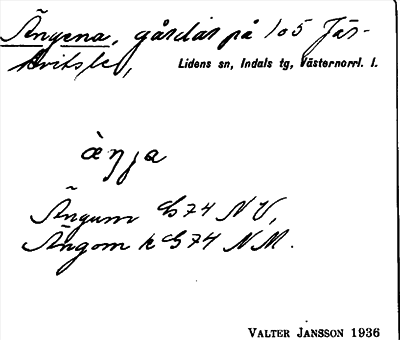 Ängena, gårdar på 105 Jär-
kvitsle,
Lidens sn, Indals tg, Västernorrl. l.
æŋɳa
Ängum G74 NV,
Ängom k G74 NM.
VALTER JANSSON 1936